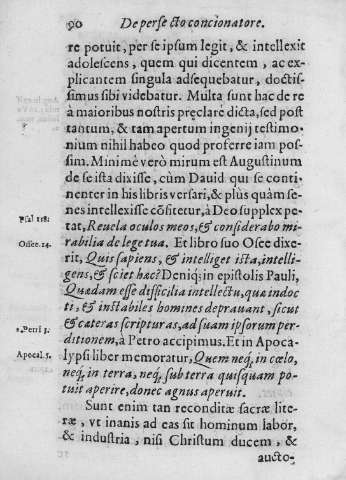 90 De perfecto concionatore.
re potuit, per se ipsum legit, & intellexit
adolescens, quem qui dicentem, ac ex-
plicantem singula adsequebatur, doctis-
simus sibi videbatur. Multa sunt hac de re
à maioribus nostris pręclare dicta, sed post
tantum, & tam apertum ingenij testimo-
nium nihil habeo quod proferre iam pos-
sim. Minimè verò mirum est Augustinum
de se ista dixisse, cùm Dauid qui se conti-
nenter in his libris versari, & plùs quàm se-
nes intellexisse cõfitetur, à Deo supplex pe-
Psal 118:
tat, Reuela oculos meos, & considerabo mi-
rabilia de lege tua. Et libro suo Osee dixe-
Osee. 14.
rit, Quis sapiens, & intelliget ista, intelli-
gens, & sciet hæc? Deniq; in epistolis Pauli,
Quædam esse difficilia intellectu, quæ indoc
ti, & instabiles homines deprauant, sicut
& cæteras scripturas, ad suam ipsorum per-
2. Petri 3.
ditionem, à Petro accipimus. Et in Apoca-
Apocal. 5.
lypsi liber memoratur, Quem neq; in cœlo,
neq; in terra, neq; sub terra quisquam po-
tuit aperire, donec agnus aperuit.
Sunt enim tan reconditæ sacræ lite-
ræ, vt inanis ad eas sit hominum labor,
& industria, nisi Christum ducem, &
aucto-